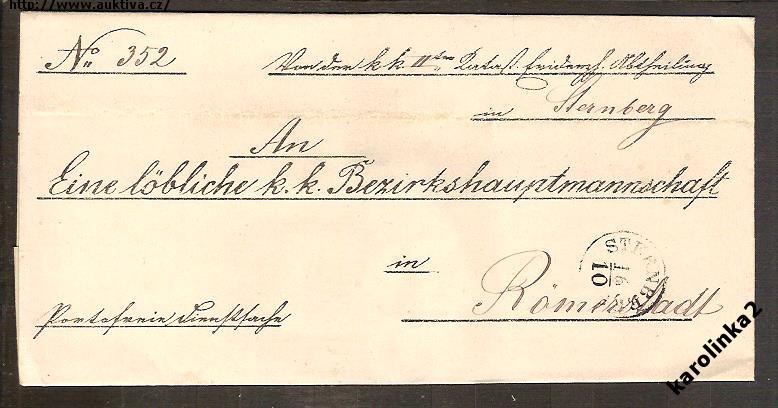 http://www.auktiva.cz/
No. 352
Von der k k IIten Catast. Evidenzh. Abtheilung
in Sternberg
An
Eine löbliche k. k. Bezirkshauptmannschaft
in
Römerstadt
STERNBERG
16
10
Portofreie Dienstsache
karolinka2